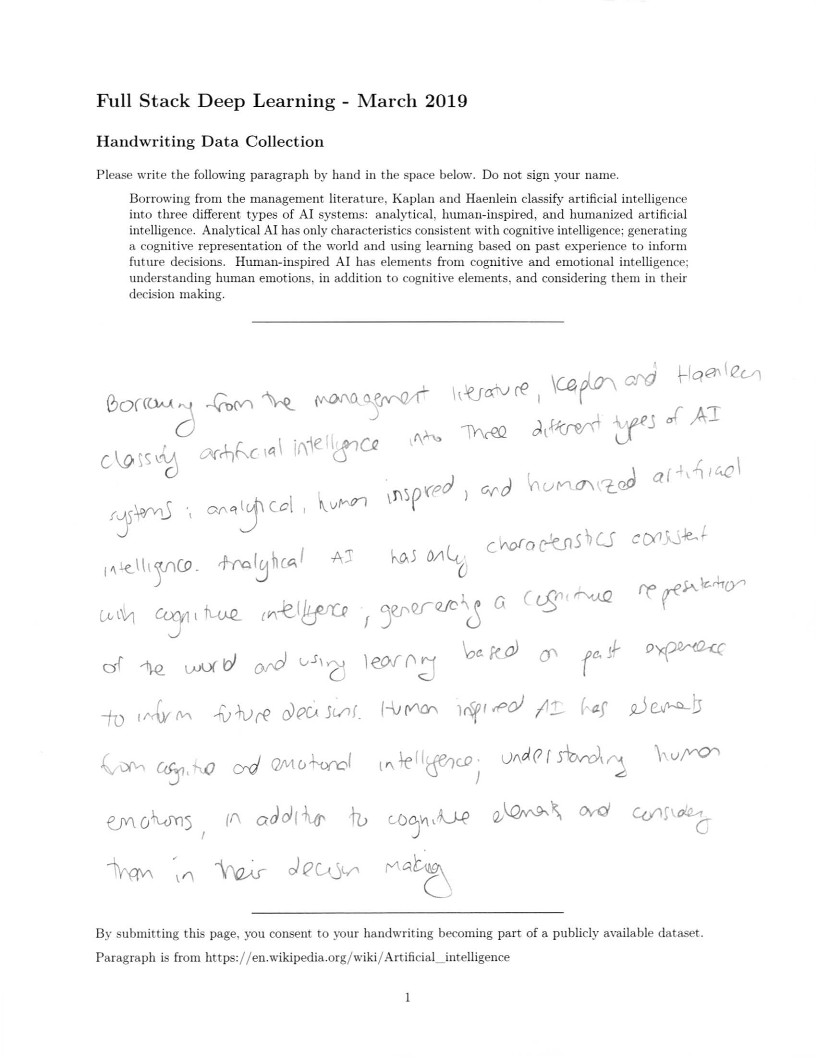 Full Stack Deep Learning - March 2019
Handwriting Data Collection
Please write the following paragraph by hand in the space below. Do not sign your name.
Borrowing from the management literature, Kaplan and Haenlein classify artificial intelligence
into three different types of AI systems: analytical, human-inspired, and humanized artificial
intelligence. Analytical AI has only characteristics consistent with cognitive intelligence; generating
a cognitive representation of the world and using learning based on past experience to inform
future decisions. Human-inspired AI has elements from cognitive and emotional intelligence;
understanding human emotions, in addition to cognitive elements, and considering them in their
decision making.
Borrowing from the management literature, Kaplan and Haenlein
classify artificial intelligence into three different types of AI
systems: analytical, human inspired, and humanized artificial
intelligence. Analytical AI has only characteristics consistent
with cognitive intelligence; generating a cognitive representation
of the world and using learning based on past experience
to inform future decisions. Human inspired AI has elements
from cognitive and emotional intelligence; understanding human
emotions, in addition to cognitive elements and considering
them in their decision making
By submitting this page, you consent to your handwriting becoming part of a publicly available dataset.
Paragraph is from https://en.wikipedia.org/wiki/Artificial_intelligence
1